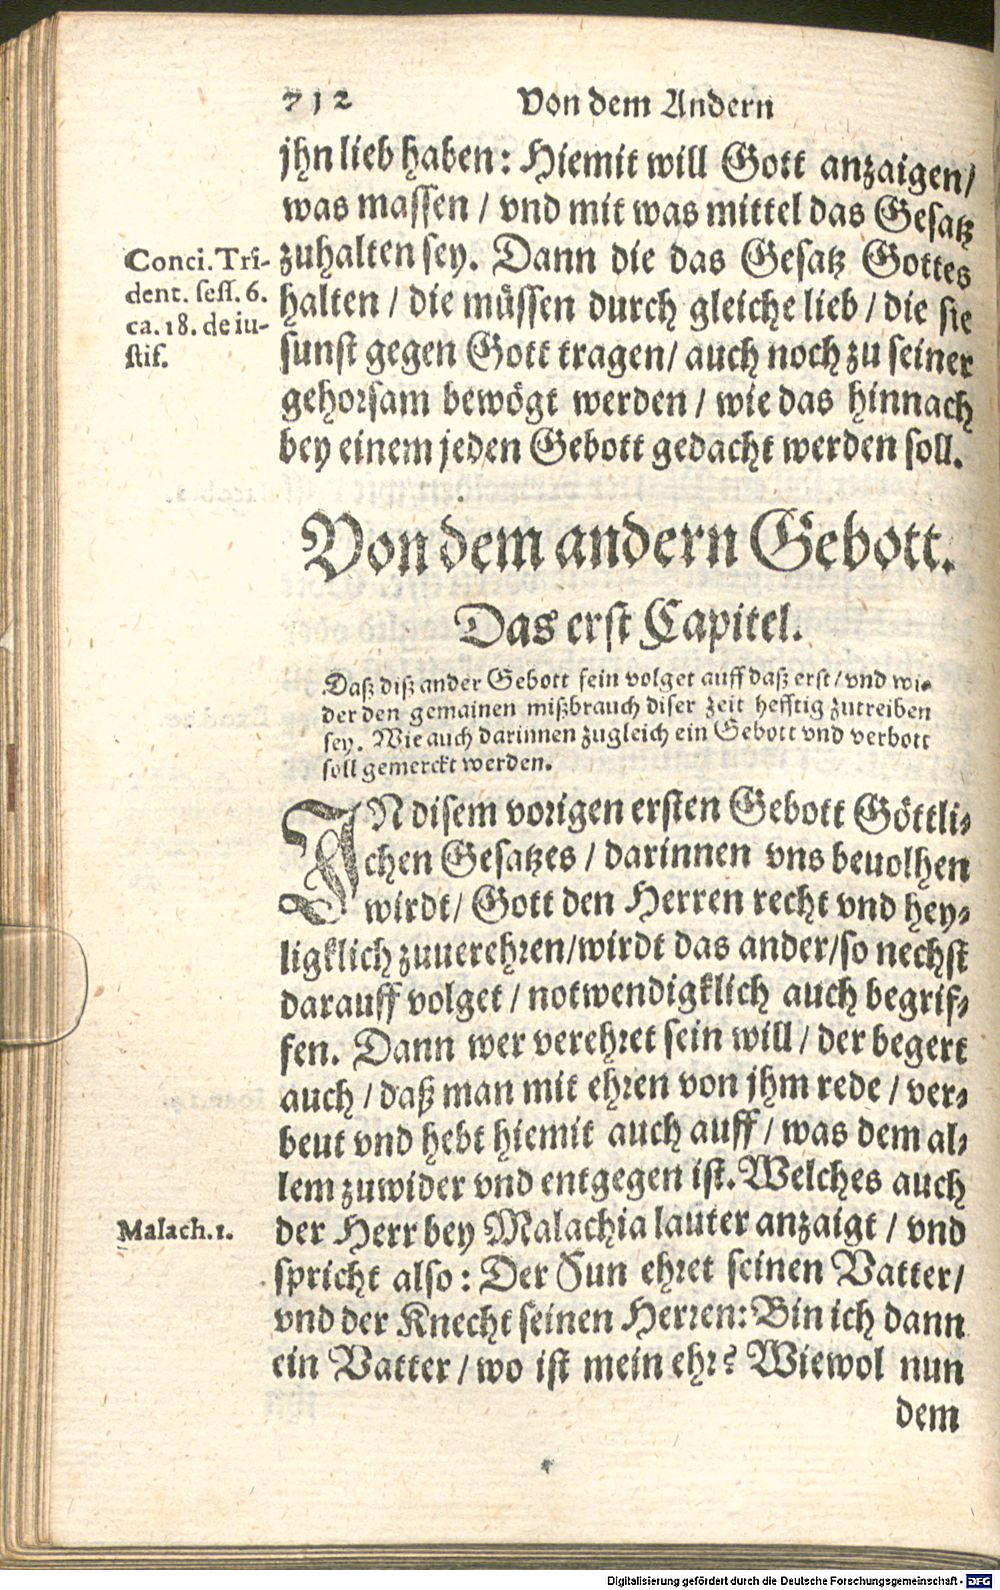 712 Von dem Andern
jhn lieb haben: Hiemit will Gott anzaigen/
was massen / vnd mit was mittel das Gesatz
zuhalten sey. Dann die das Gesatz Gottes
halten / die müssen durch gleiche lieb / die sie
sunst gegen Gott tragen/ auch noch zu seiner
gehorsam bewögt werden / wie das hinnach
bey einem jeden Gebott gedacht werden soll.
Conci. Tri-
dent. sess. 6.
ca. 18. de iu-
stif.
Von dem andern Gebott.
Das erst Capitel.
Daß diß ander Gebott fein volget auff daß erst / vnd wi-
der den gemainen mißbrauch diser zeit hefftig zutreiben
sey. Wie auch darinnen zugleich ein Gebott vnd verbott
soll gemerckt werden.
IN disem vorigen ersten Gebott Göttli-
chen Gesatzes / darinnen vns beuolhen
wirdt/ Gott den Herren recht vnd hey-
ligklich zuuerehren/wirdt das ander/so nechst
darauff volget / notwendigklich auch begrif-
fen. Dann wer verehret sein will / der begert
auch / daß man mit ehren von jhm rede / ver-
beut vnd hebt hiemit auch auff / was dem al-
lem zuwider vnd entgegen ist. Welches auch
der Herr bey Malachia lauter anzaigt / vnd
spricht also: Der Sun ehret seinen Vatter/
vnd der Knecht seinen Herren: Bin ich dann
ein Vatter / wo ist mein ehr? Wiewol nun
dem
Malach. 1.
Digitalisierung gefördert durch die Deutsche Forschungsgemeinschaft - DFG